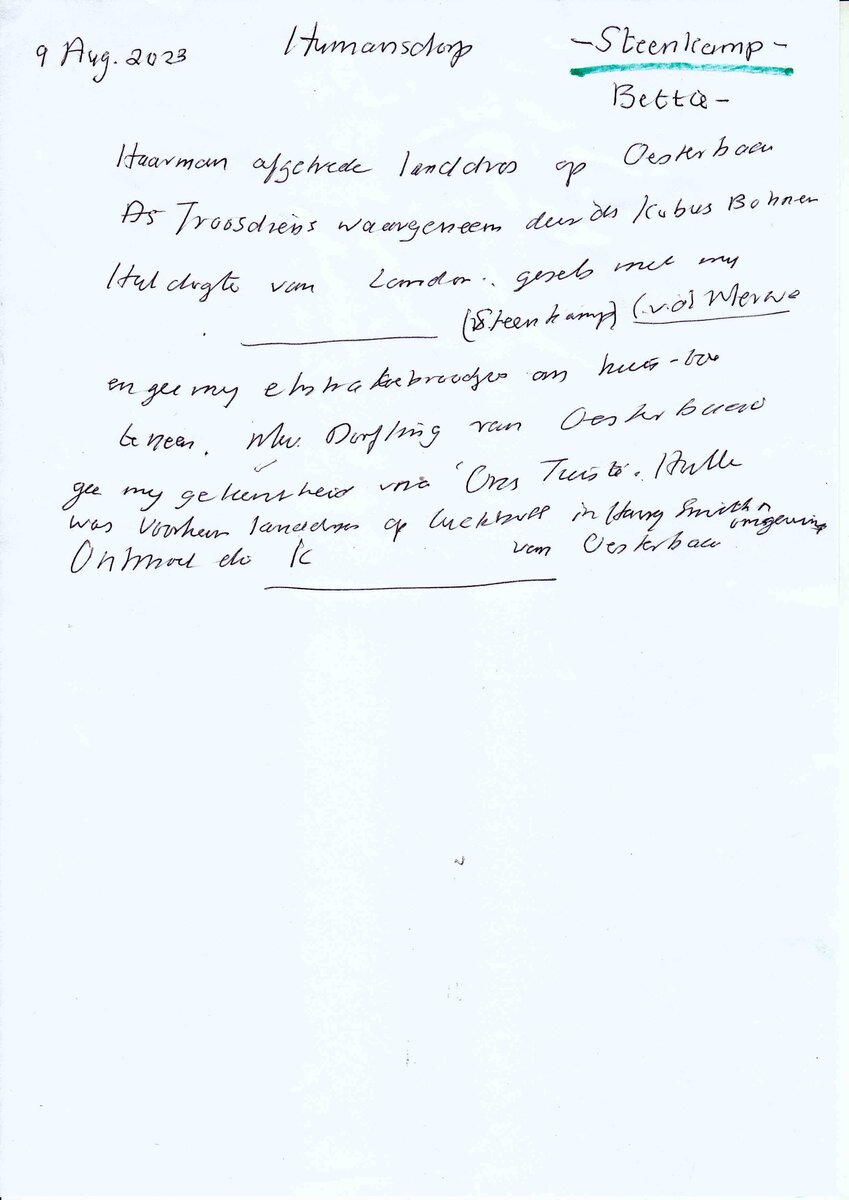 9 Aug. 2023 Humansdorp - Steenkamp -
Betta -
Haarman afgetrede landdros op Oesterbaai
As Troosdiens waargeneem deur ds Kobus Bohnen
Huldigte van London. gesels met my
(Steenkamp) (v.d) Merwe
en gee my ekstra broodjes om huis-toe
te neem. Mev. Dorfling van Oesterbaai
gee my geleentheid na Ons Tuiste. Hulle
was voorheen landdros op in Harry Smith omgewing
Ontmoet ds K van Oesterbaai